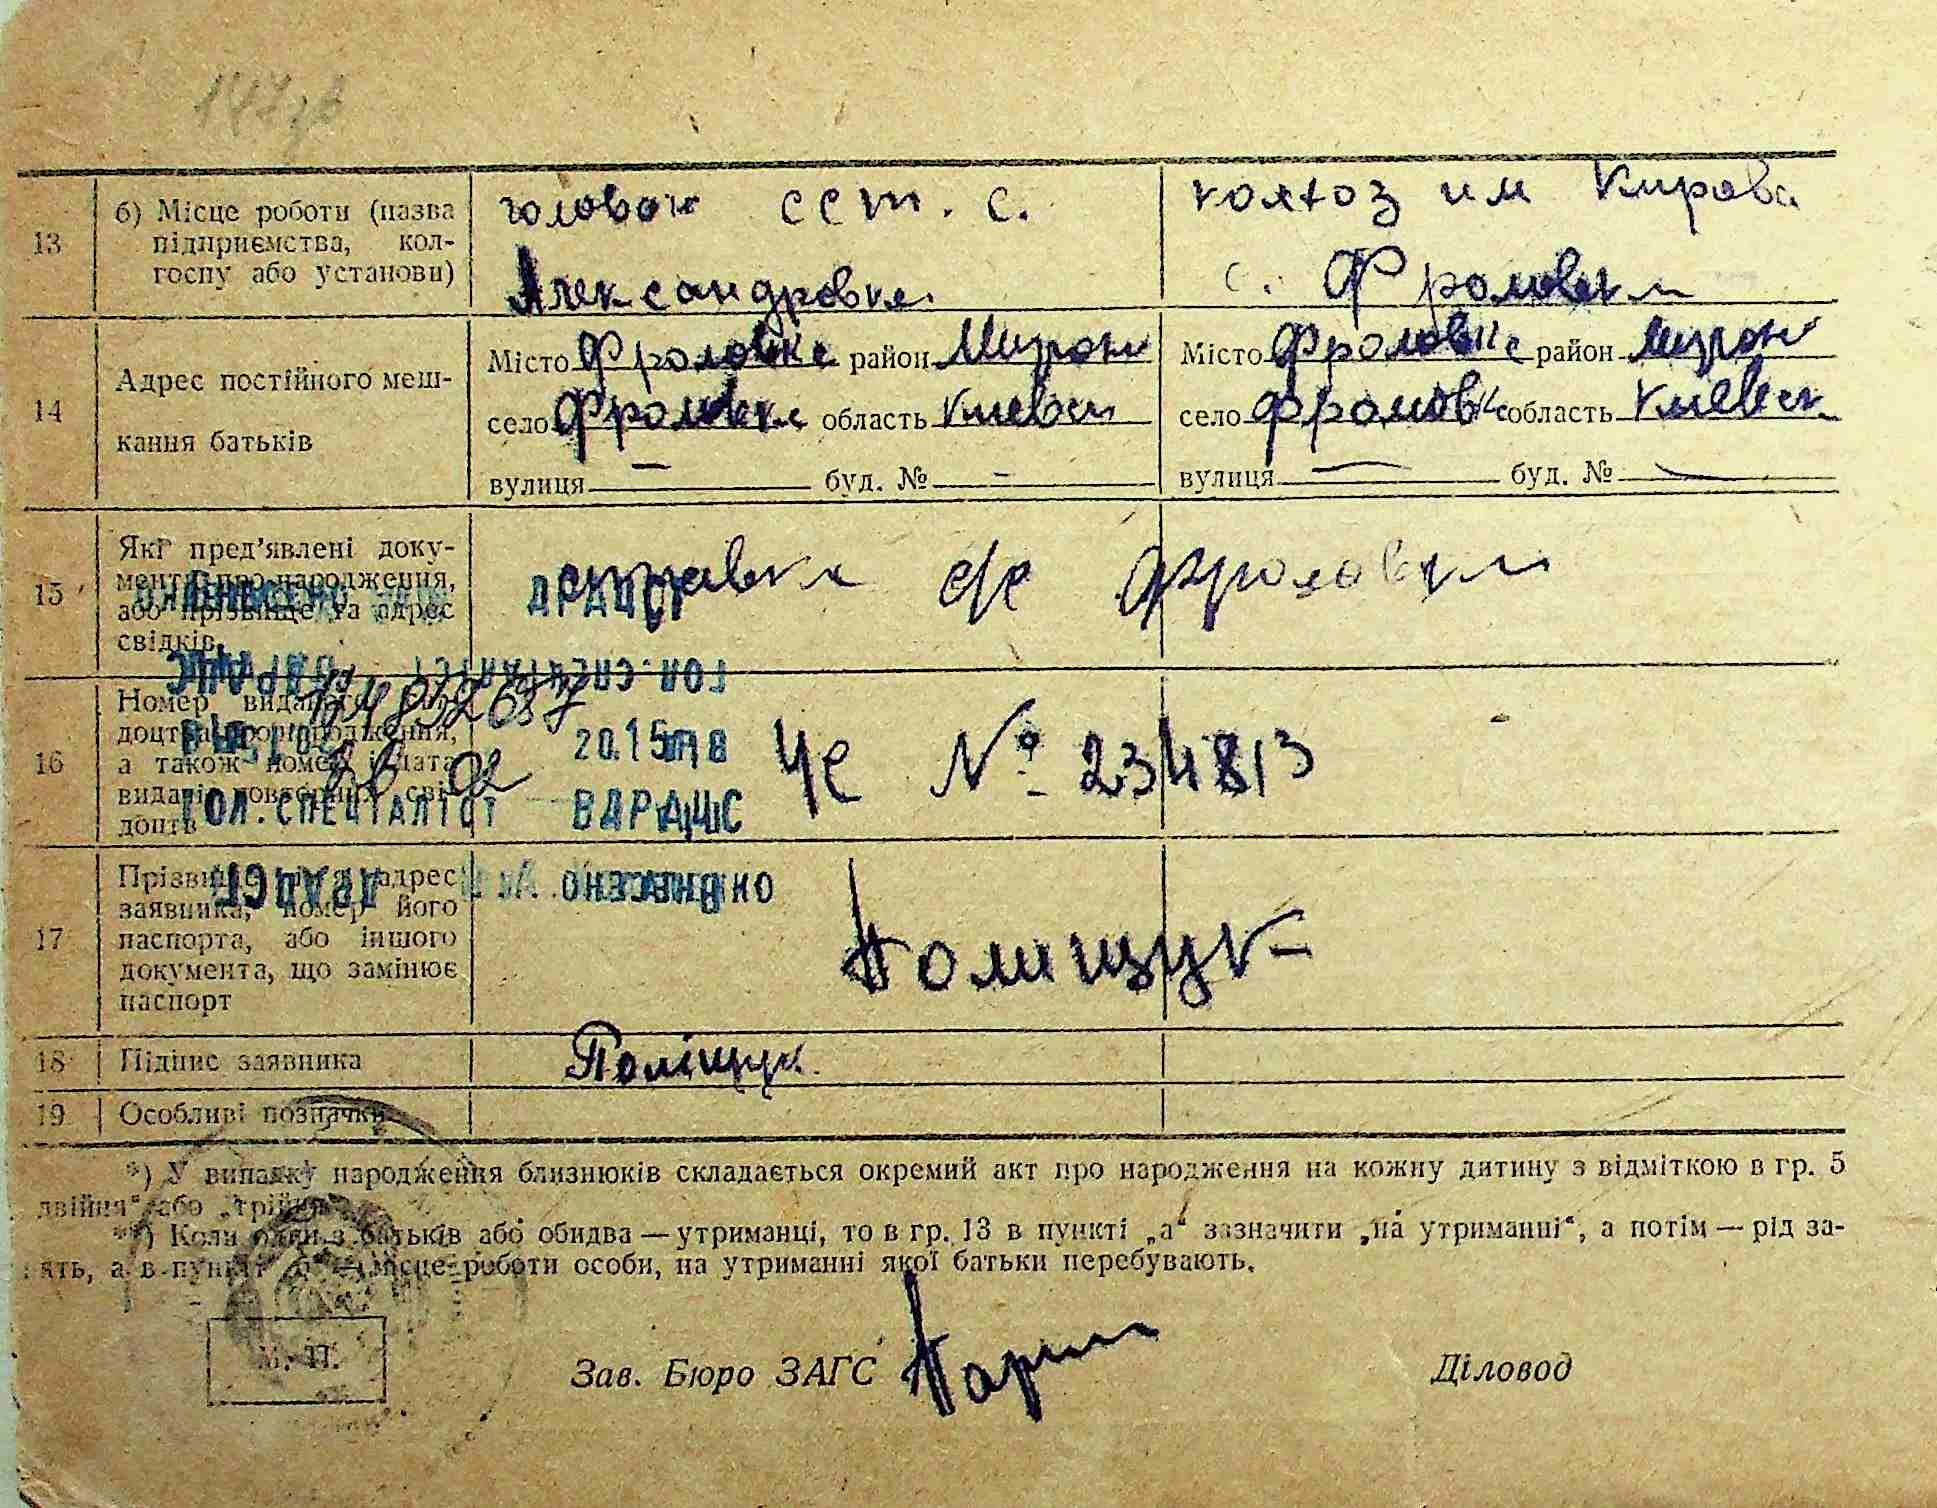 13
б) Місце роботи (назва
підприємства, кол-
госпу або установи)
с.
Александровка
колхоз им Кирова
с. Фроловка
14
Адрес постійного меш-
кання батьків
Місто Фроловке район Мирон
село Фроловке область Киевск
вулиця — буд. № —
Місто Фроловке район Мирон
село Фроловке область Киевск
вулиця — буд. № —
15
Які пред'явлені доку-
менти про народження,
або прізвище та адрес
свідків
справка с/с Фроловки
ДРАЦСГ
16
Номер виданого
народження,
а також номер і дата
видачі повторних сві-
доцтв
ЧС № 234813
ГОЛ.СПЕЦІАЛІСТ ВДРАЦС
17
Прізвище, ім'я, адрес
заявника, номер його
паспорта, або іншого
документа, що замінює
паспорт
Полищук
18
Підпис заявника
Поліщук
19
Особливі позначки
*) У випадку народження близнюків складається окремий акт про народження на кожну дитину з відміткою в гр. 5
двійня“ або „трійня“
**) Коли один з батьків або обидва — утриманці, то в гр. 13 в пункті „а“ зазначити „на утриманні“, а потім — рід за-
ять, а в пункті місце роботи особи, на утриманні якої батьки перебувають.
М. П.
Зав. Бюро ЗАГС
Діловод